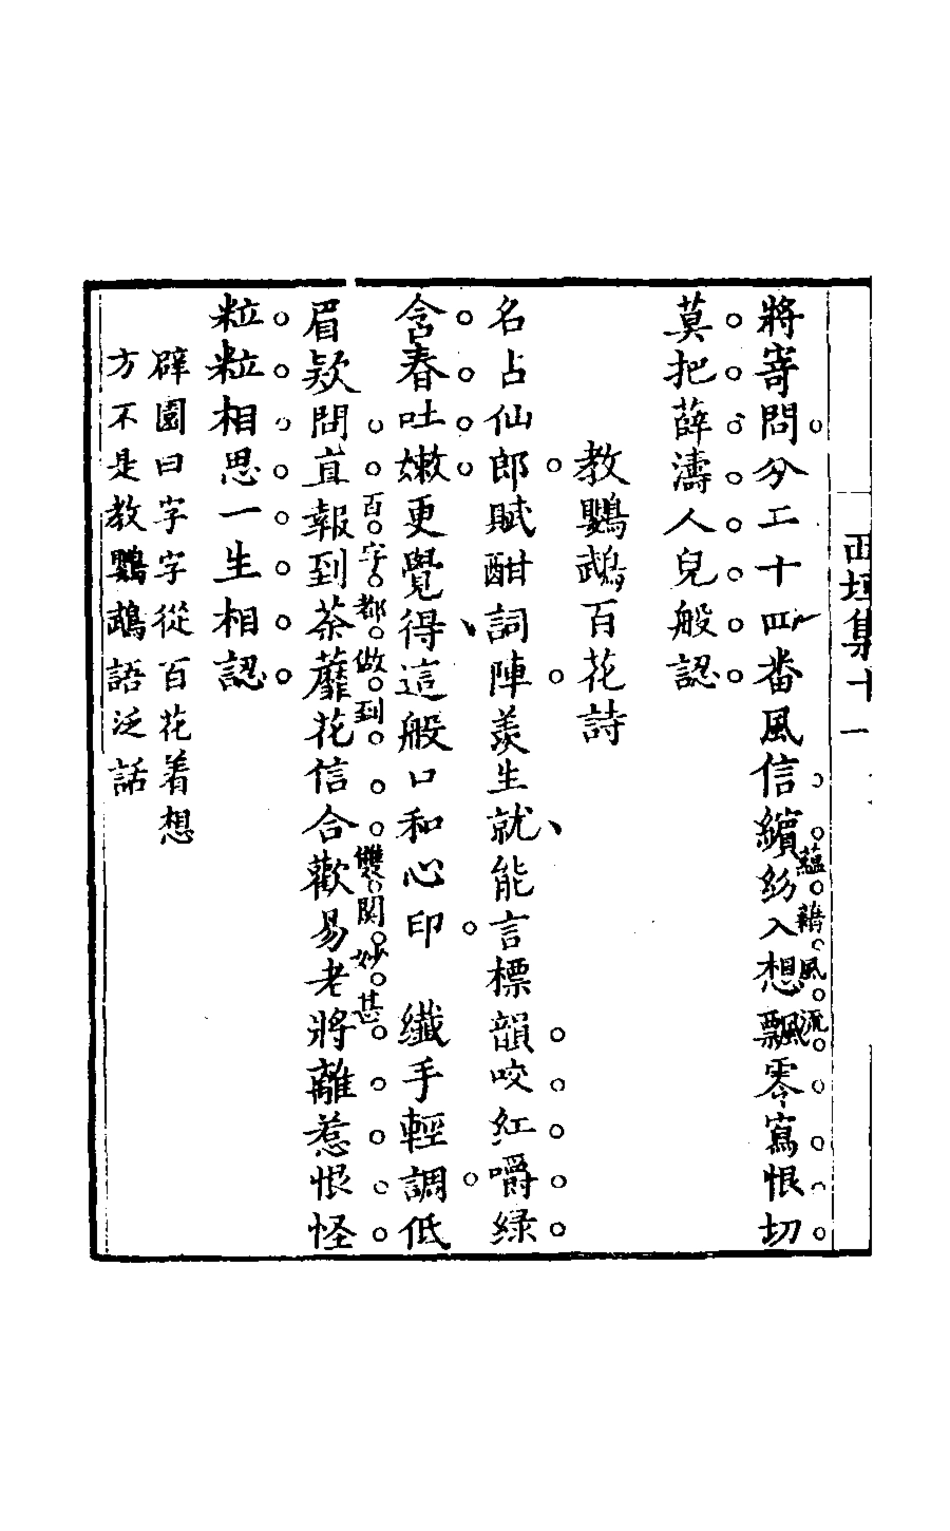 西垣集十一
將寄問分工十四番風信續紛入想飄零寫恨切
蘊藉風流
莫把薛濤人兒般認
教鸚鵡百花詩
名占仙郎賦酣詞陣羨生就能言標韻咬紅嚼綠
含春吐嫩更覺得這般口和心印　纖手輕調低
眉欵問直報到荼蘼花信合歡易老將離惹恨怪
百字都做到
雙関妙甚
粒粒相思一生相認
辟園曰字字從百花着想
方不是教鸚鵡語泛話